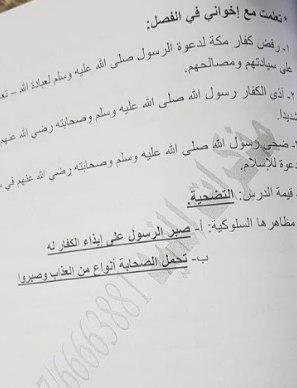 * تعلمت مع إخواني في الفصل:
١. رفض كفار مكة لدعوة الرسول صلى الله عليه وسلم لعبادة الله –
على سيادتهم ومصالحهم.
٢. آذى الكفار رسول الله صلى الله عليه وسلم وصحابته رضي الله عنهم
شديدا.
ضحى رسول الله صلى الله عليه وسلم وصحابته رضي الله عنهم في
دعوة للإسلام.
قيمة الدرس: التضحية.
مظاهرها السلوكية: أ- صبر الرسول على إيذاء الكفار له
ب- تحمل الصحابة أنواع من العذاب وصبروا
66663881